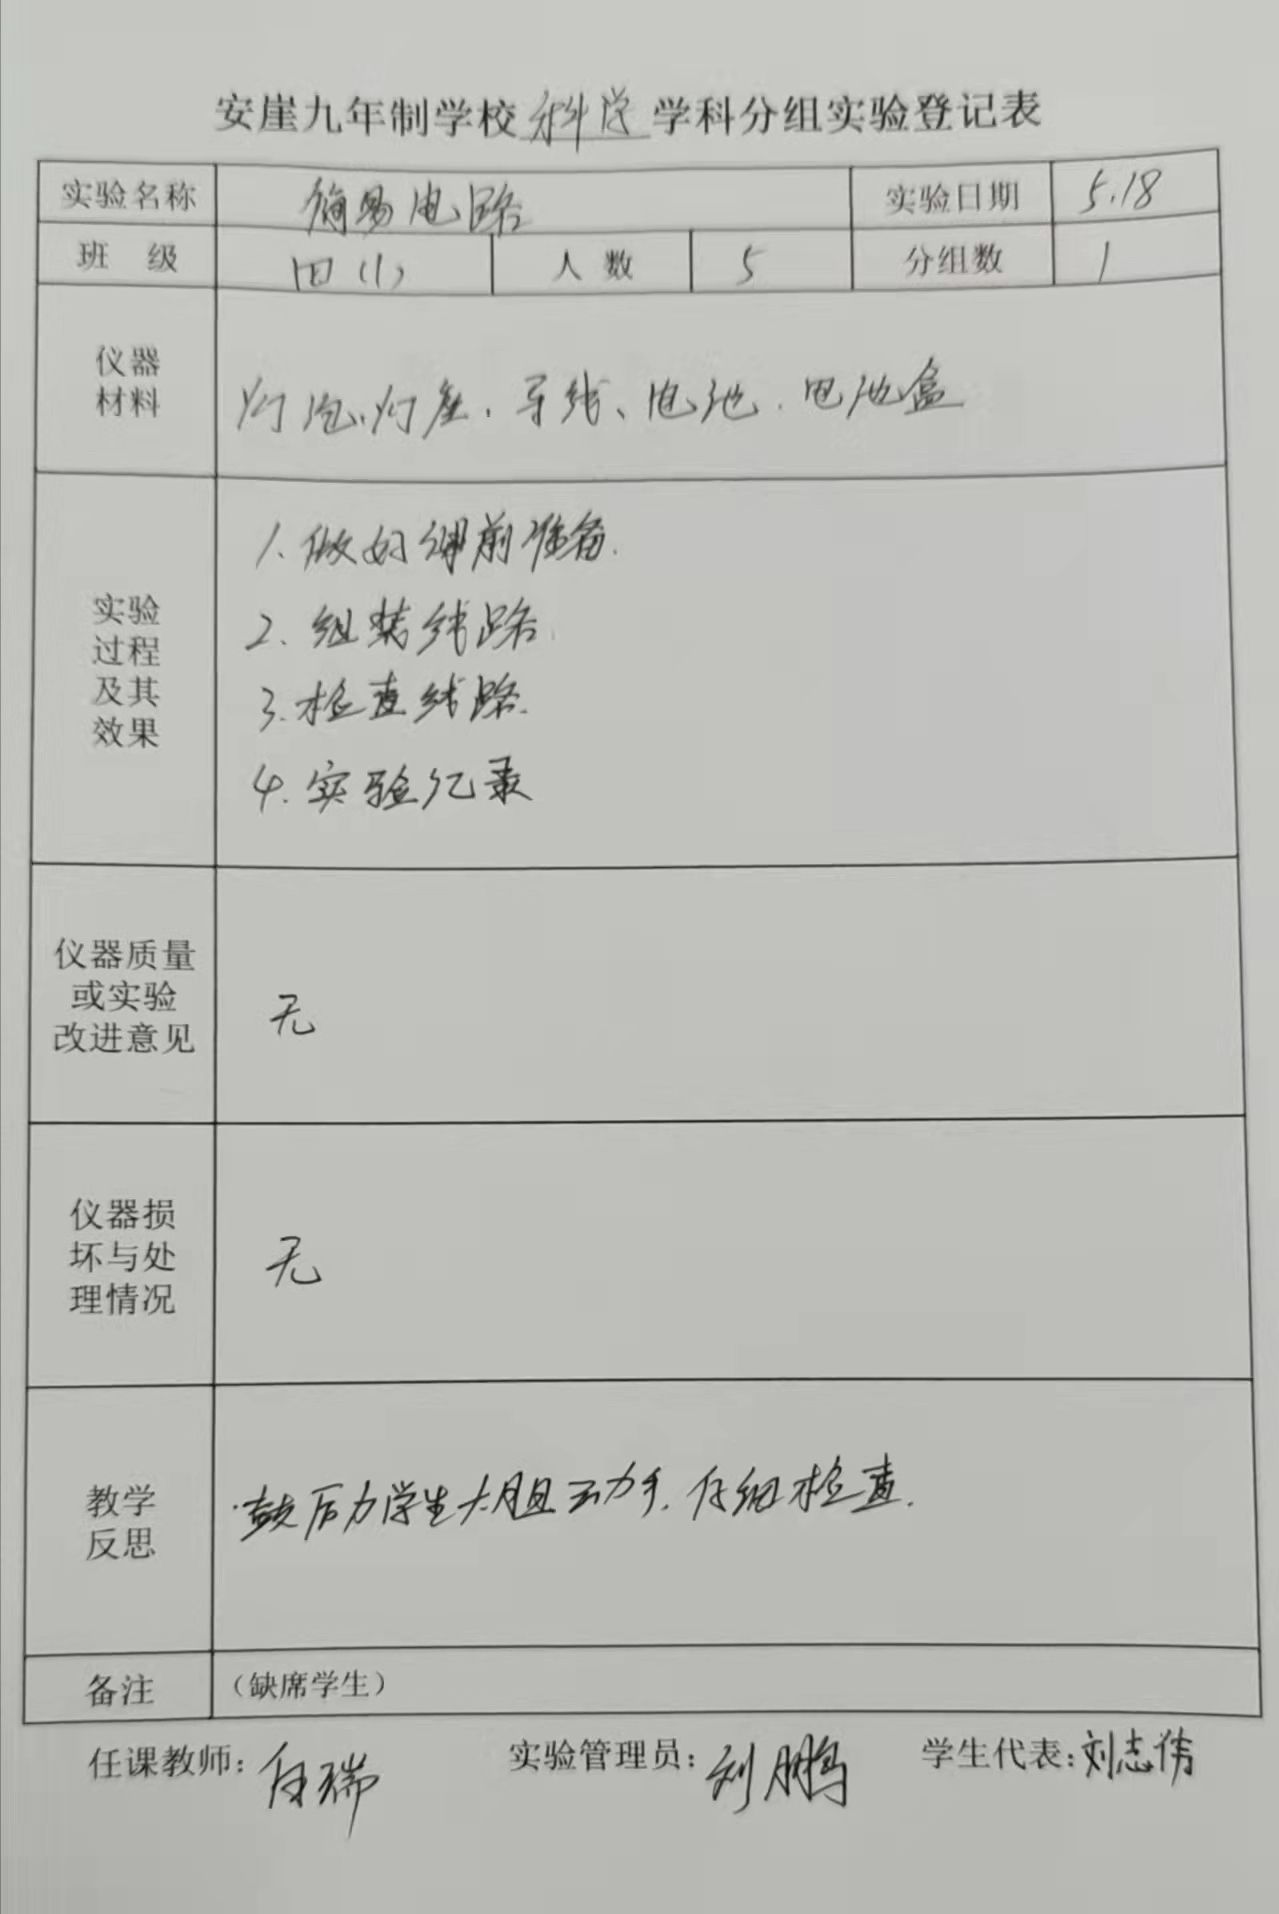 安崖九年制学校科学学科分组实验登记表
实验名称 简易电路 实验日期 5.18
班 级 四(1) 人 数 5 分组数 1
仪器
材料
灯泡、灯座、导线、电池、电池盒
实验
过程
及其
效果
1. 做好课前准备.
2. 组装线路.
3. 检查线路.
4. 实验记录
仪器质量
或实验
改进意见
无
仪器损
坏与处
理情况
无
教学
反思
鼓励学生大胆动手. 仔细检查.
备注 (缺席学生)
任课教师: 任瑞 实验管理员: 刘鹏 学生代表: 刘志伟